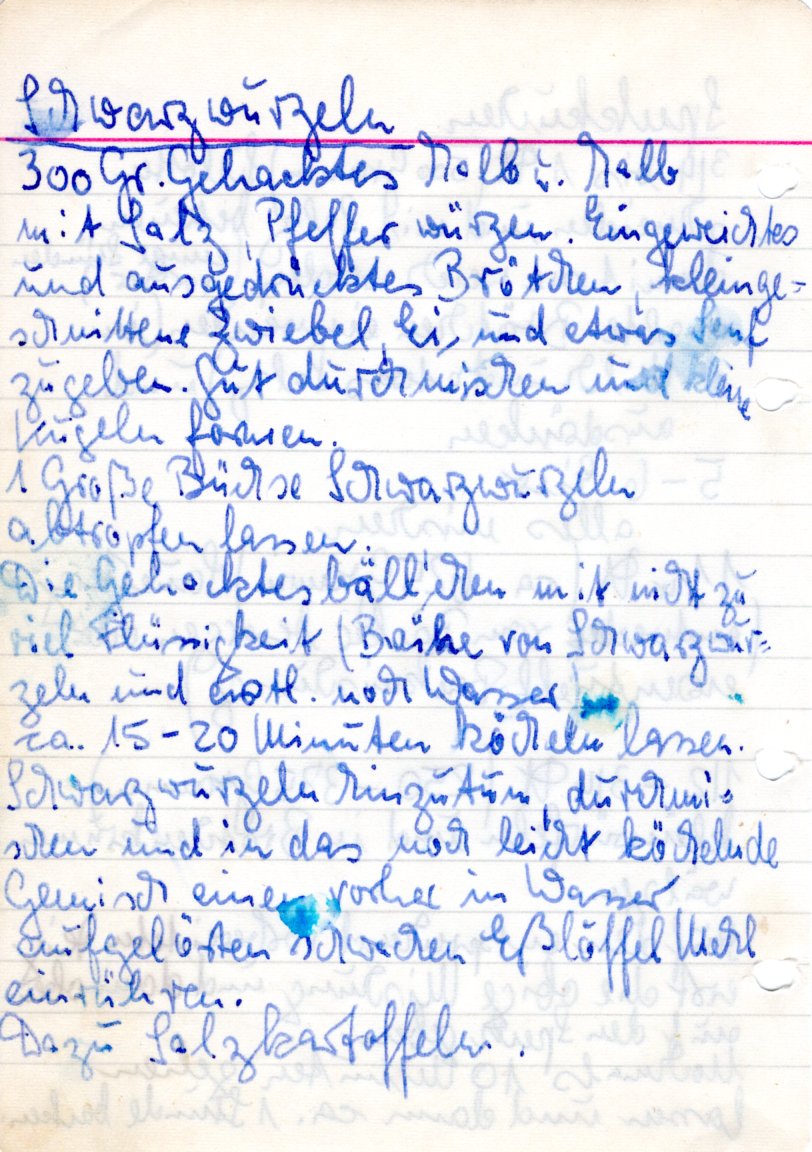 Schwarzwurzeln
300 Gr. Gehacktes halb u. halb
mit Salz, Pfeffer würzen. Eingeweichtes
und ausgedrücktes Brötchen, kleinge=
schnittene Zwiebel, Ei, und etwas Senf
zugeben. Gut durchmischen und kleine
Kugeln formen.
1 Große Büchse Schwarzwurzeln
abtropfen lassen.
Die Gehacktesbällchen mit nicht zu
viel Flüssigkeit (Brühe von Schwarzwur=
zeln und evtl. noch Wasser)
ca. 15-20 Minuten köcheln lassen.
Schwarzwurzeln hinzutun, durchmi=
schen und in das noch leicht köchelnde
Gemisch einen vorher in Wasser
aufgelösten schwachen Eßlöffel Mehl
einrühren.
Dazu Salzkartoffeln.